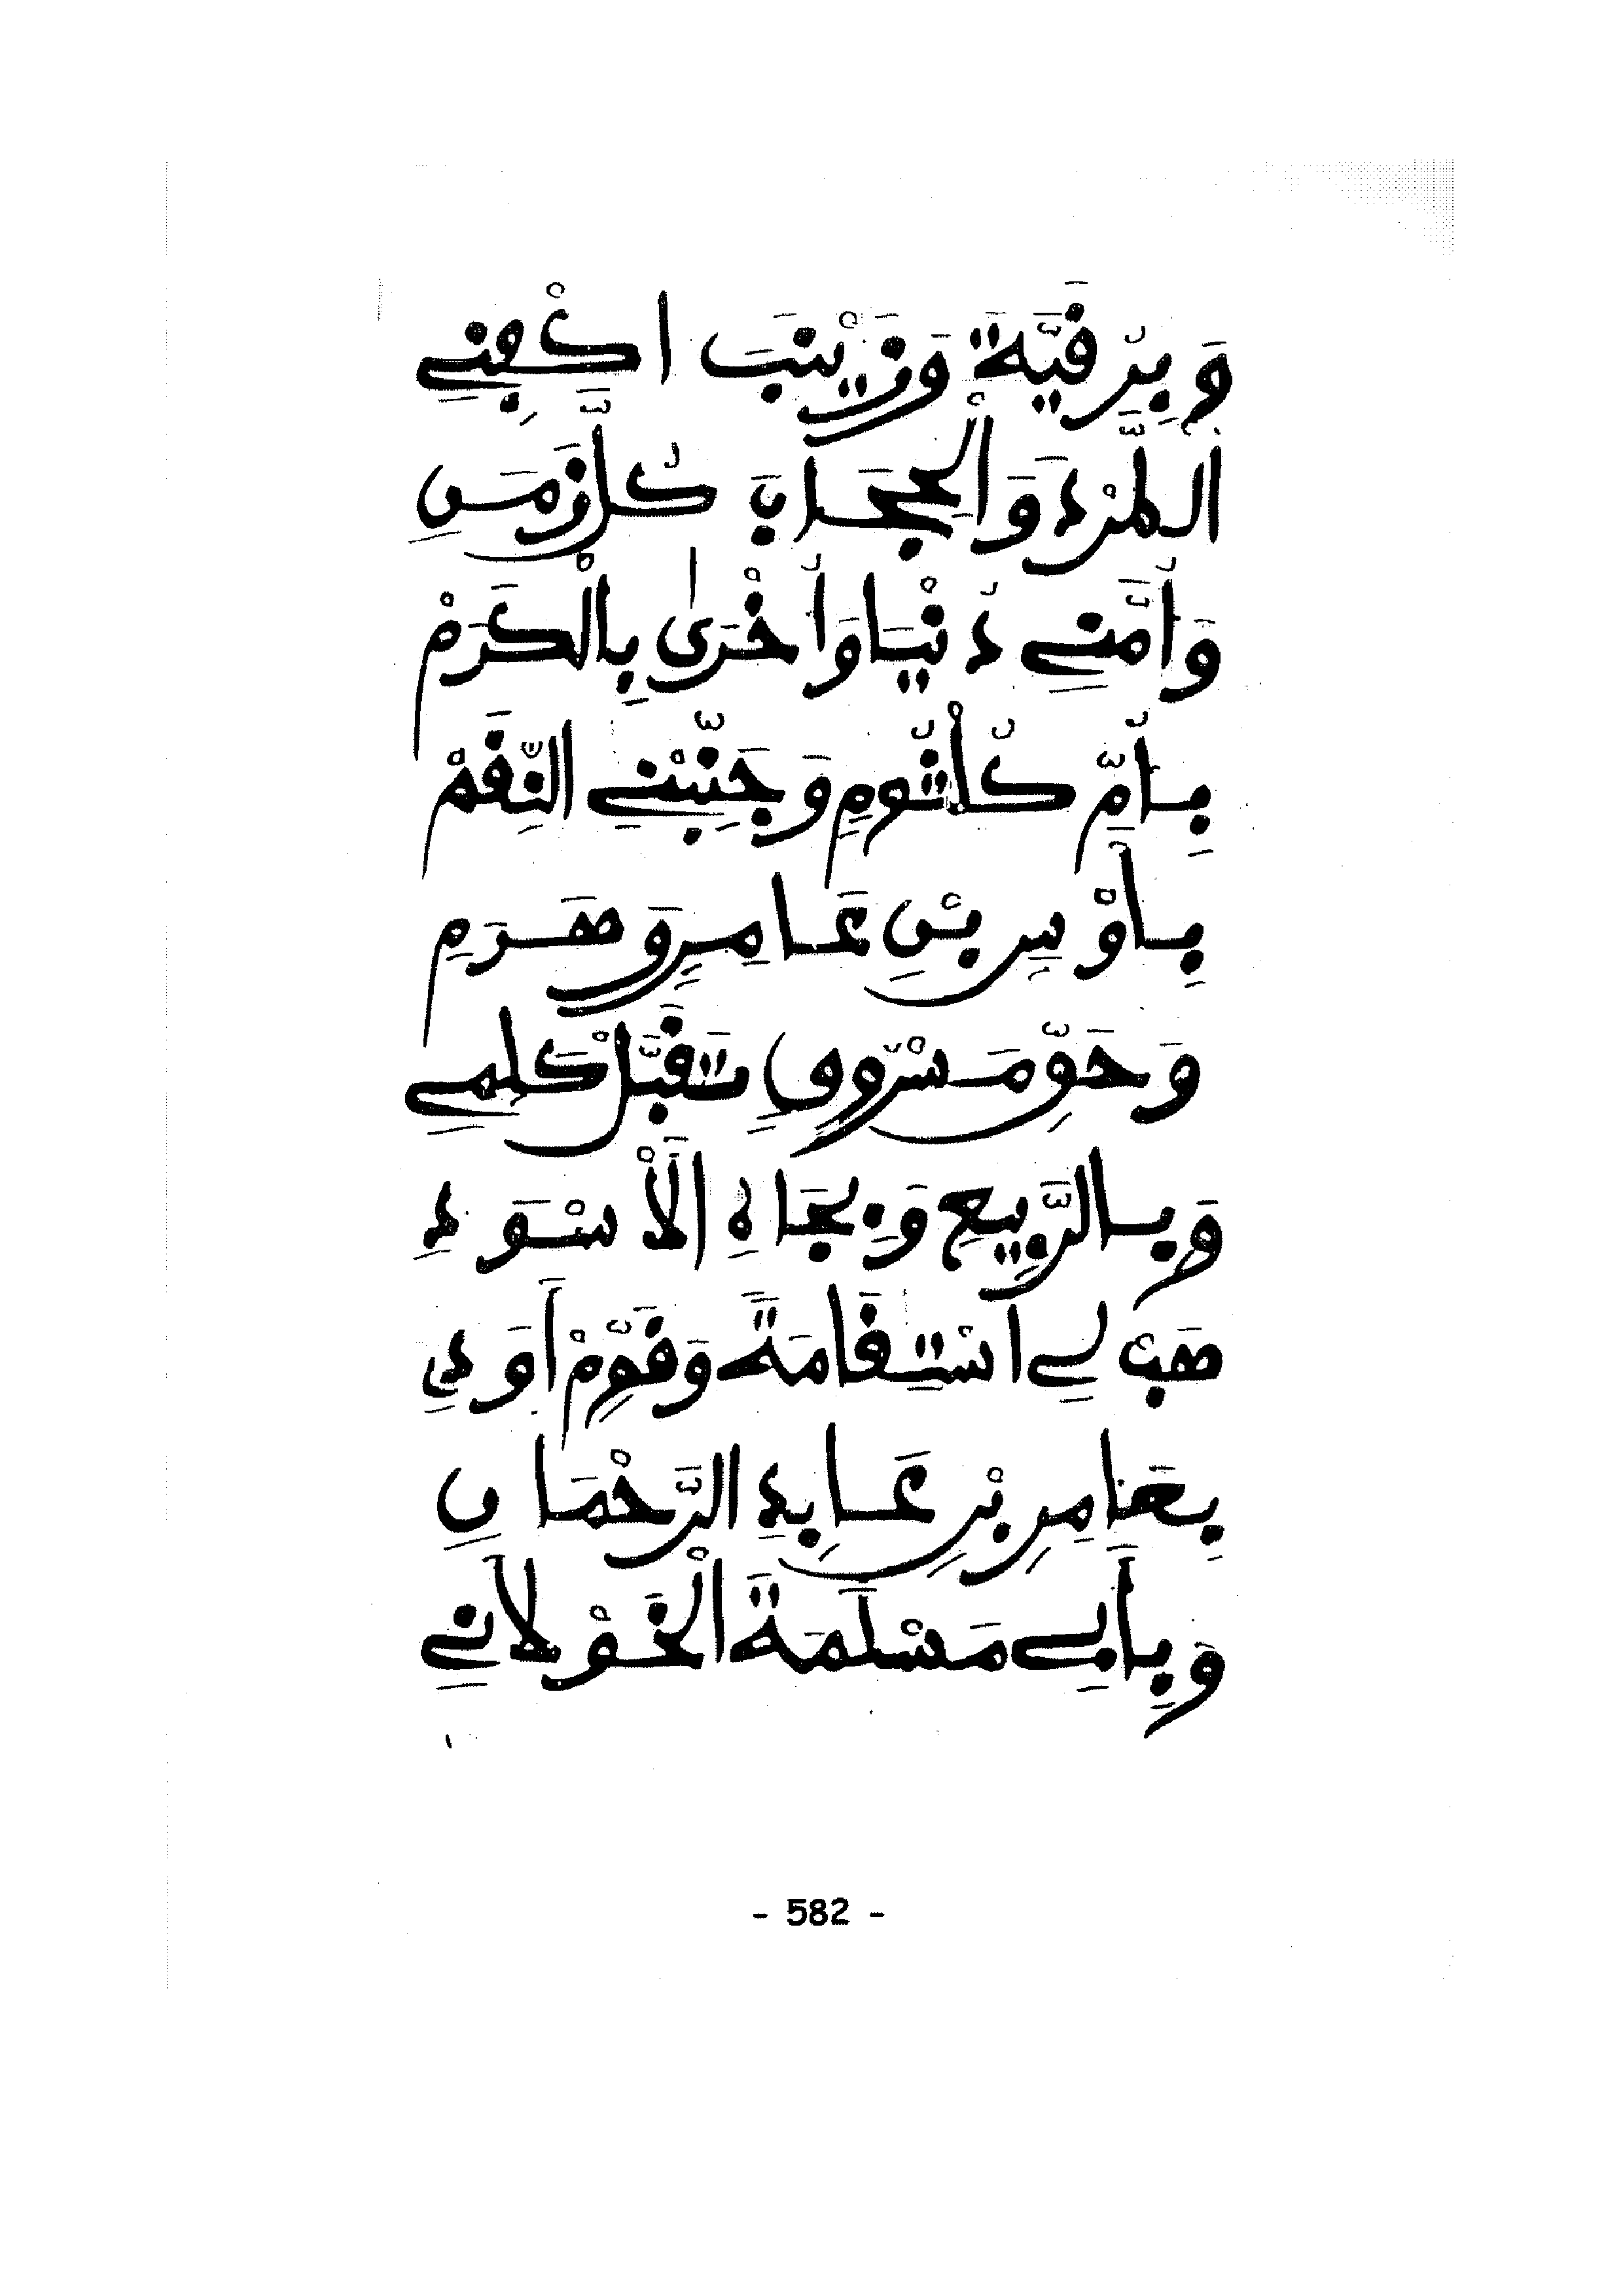 وَبِرُقَيَّةَ وَزَيْنَبَ اكْفِنِي
الْمَرْءَ وَالْحِجَابَ كُلَّ زَمَنِ
وَأُمَّنِي دُنْيَا وَأُخْرَىٰ بِالْكَرَمْ
بِأُمِّ كُلْثُومٍ وَجَنِّبْنِي النِّقَمْ
بِأَوْسٍ بْنِ عَامِرٍ وَهَرَمِ
وَحَقِّ مَسْرُوقٍ تَقَبَّلْ كَلِمِي
وَبِالرَّبِيعِ وَبِجَاهِ الْأَسْوَدِ
هَبْ لِي اسْتِقَامَةً وَقَوِّمْ أَوَدِي
بِعَامِرِ بْنِ عَابِدِ الرَّحْمَانِ
وَبِأَبِي مَسْلَمَةَ الْخَوْلَانِي
- 582 -